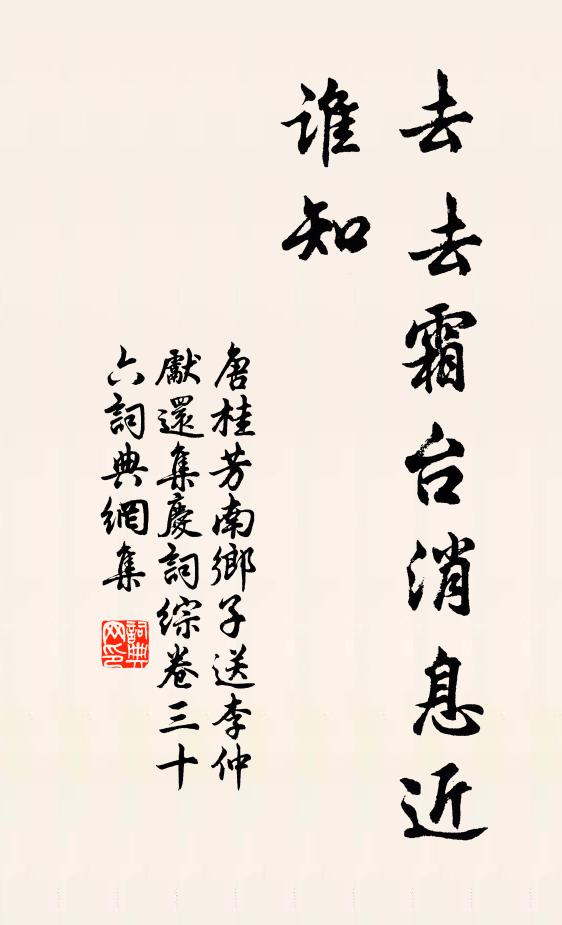 去去霜台消息近
谁知
唐桂芳南鄉子送李仲
獻還集慶詞综卷三十
六詞典網集
詞典
网印